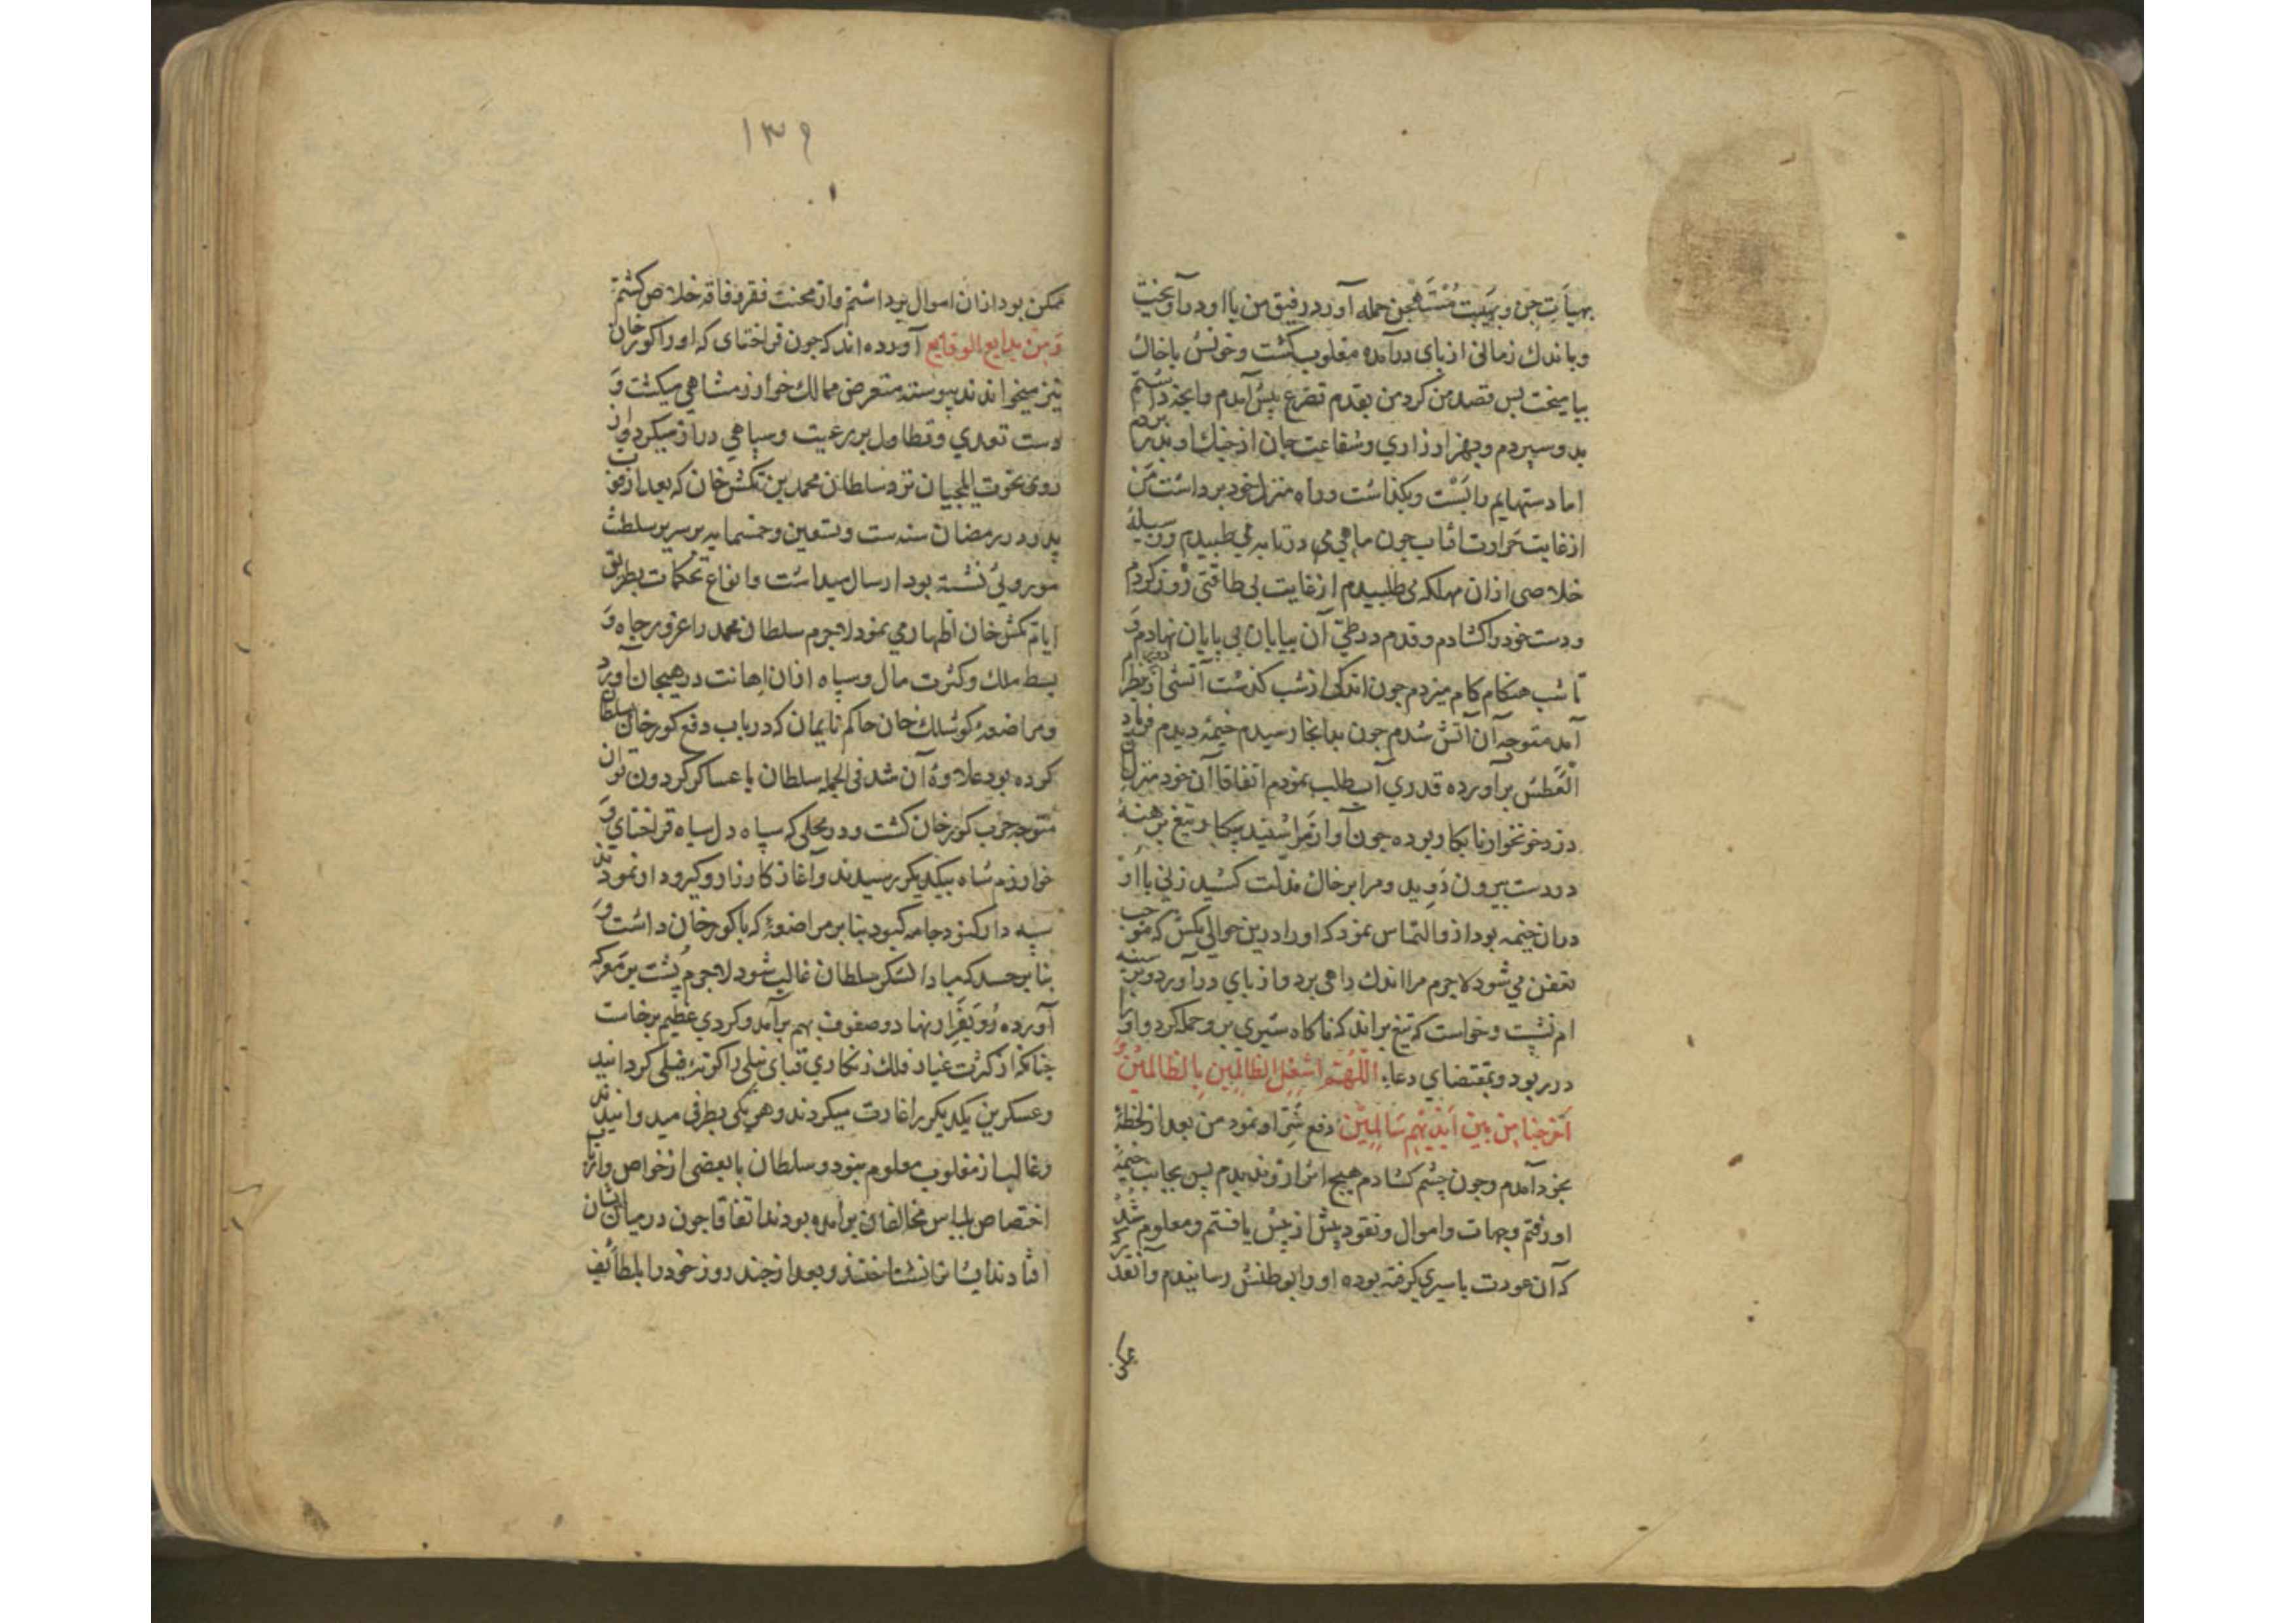 بهیأت جن و بهیبت مُسْتَهْجن حمله آورد رفیق من با او درآویخت
و باندك زمانی از پای درآمده مغلوب گشت و خونش با خاك
بیامیخت پس قصد من کرد من بقدم تضرع پیش آمدم و آنچه داشتم
بدو سپردم و بهزار زاری و شفاعت جان از چنك او بدر بردم
اما دستهایم را ببست و بگذاشت و راه منزل خود برداشت من
از غایت حرارت آفتاب چون ماهی در تابه می طپیدم و وسیلهٔ
خلاصی ازان مهلکه می طلبیدم از غایت بی طاقتی زور کردم
و دست خود را گشادم و قدم در طیّ آن بیابان بی پایان نهادم و
تا شب هنگام کام میزدم چون اندکی از شب گذشت آتشی از دور در نظرم
آمد متوجه آن آتش شدم چون بدانجا رسیدم خیمهٔ دیدم فریاد
العَطَش برآورده قدری آب طلب نمودم اتفاقا آن خود منزل
دزد خونخوار نابکار بوده چون آواز مرا شنید بیکبار تیغ برهنه
در دست بیرون دوید و مرا بر خاك مذلت کشید زنی با او
دران خیمه بود ازو التماس نمود که او را درین حوالی مکش که موجب
تعفن می شود لاجرم مرا اندك راهی برد و از پای درآورد و بر سینه
ام نشست و خواست که تیغ براند که ناکاه شیری برو حمله کرد و او را
در ربود و بمقتضای دعاء اللّهُمَّ اشْغِلِ الظالِمِینَ بِالظالِمِینَ وَ
اَخْرِجْنا مِنْ بَیْنِ اَیْدِیْهِم سَالِمِیْنَ دفع شرّ او نمود من بعد از لحظهٔ
بخود آمدم و چون چشم گشادم هیچ اثر ازو ندیدم پس بجانب خیمهٔ
او رفتم و جهات و اموال و نقود بیش از پیش یافتم و معلوم شد
که آن عورت باسیری گرفته بوده او را بوطنش رسانیدم و آنقدر که
١٣٩
ممکن بود ازان اموال برداشتم و از محنت فقر و فاقه خلاص گشتم
وَ مِنْ بدایع الوقایع آورده اند که چون قراختای که او را کورخان
نیز میخواندند پیوسته متعرض ممالك خوارزمشاهی میکشت و
دست تعدی و تطاول بر رعیت و سپاهی دراز میکرد و از
روی نخوت ایلچیان نزد سلطان محمد بن تکش خان که بعد از فوت
پدر در رمضان سنه ست و تسعین و خمسمایه بر سریر سلطنت
موروثی نشسته بود ارسال میداشت و انواع تحکمات بطریق
ایام تکش خان اظهار می نمود لاجرم سلطان محمد را غرور جاه و
بسط ملك و کثرت مال و سپاه ازان اهانت در هیجان آورد
و مراضعهٔ کوشلك خان حاکم نایمان که در باب دفع کورخان با سلطان
کرده بود علاوهٔ آن شد فی الجمله سلطان با عساکر گردون توان
متوجه حرب کورخان گشت و در محلی که سپاه دل سیاه قراختای و
خوارزم شاه بیکدیگر رسیدند و آغاز کارزار و گیرودار نمودند
سپه دار کبود جامه بنا بر مراضعهٔ که با کورخان داشت و
بنا بر حسد که مبادا لشکر سلطان غالب شود لاجرم پشت بر معرکه
آورده رو بفرار نهاد و صفوف بهم برآمد و گردی عظیم برخاست
چنانکه از کثرت غبار فلك زنکاری قبای نیلی را گونهٔ فیلی گردانید
و عسکرین یکدیگر را غارت میکردند و هر یکی بطرفی میدوانیدند
و غالب از مغلوب معلوم نبود و سلطان با بعضی از خواص و ارباب
اختصاص بلباس مخالفان برآمده بودند اتفاقا چون در میان ایشان
افتادند ایشانرا نشناختند و بعد از چند روز خود را بلطایف